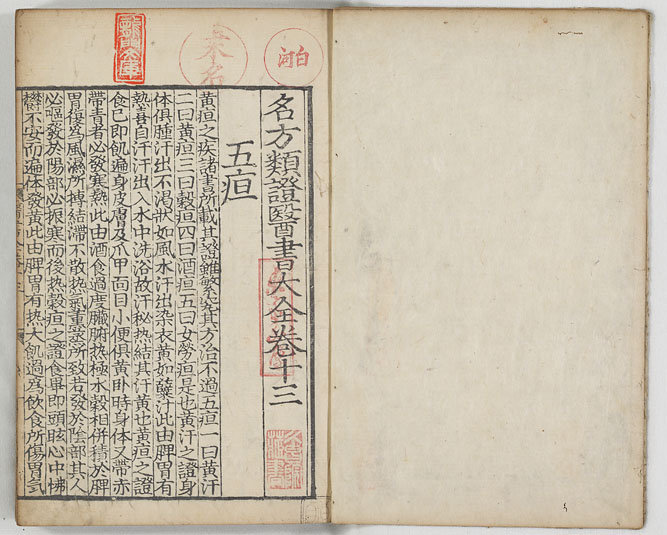 名方類證醫書大全卷十三
五疸
黃疸之疾諸書所載其證雖繁究其方治不過五疸一曰黃汗
二曰黃疸三曰穀疸四曰酒疸五曰女勞疸是也黃汗之證身
体俱腫汗出不渴狀如風水汗出染衣黃如蘗汁此由脾胃有
熱喜自汗汗出入水中洗浴故汗秘热結其汗黃也黃疸之證
食已即飢遍身皮膚及爪甲面目小便俱黃卧時身体又帶赤
帶青者必發寒熱此由酒食過度臟腑热極水穀相併積於脾
胃復為風濕所搏結滯不散热氣薰蒸所致若發於陰部其人
必嘔發於陽部必振寒而後热穀疸之證食畢即頭眩心中怫
欝不安而遍体發黃此由脾胃有热大飢過為飲食所傷胃氣
白河